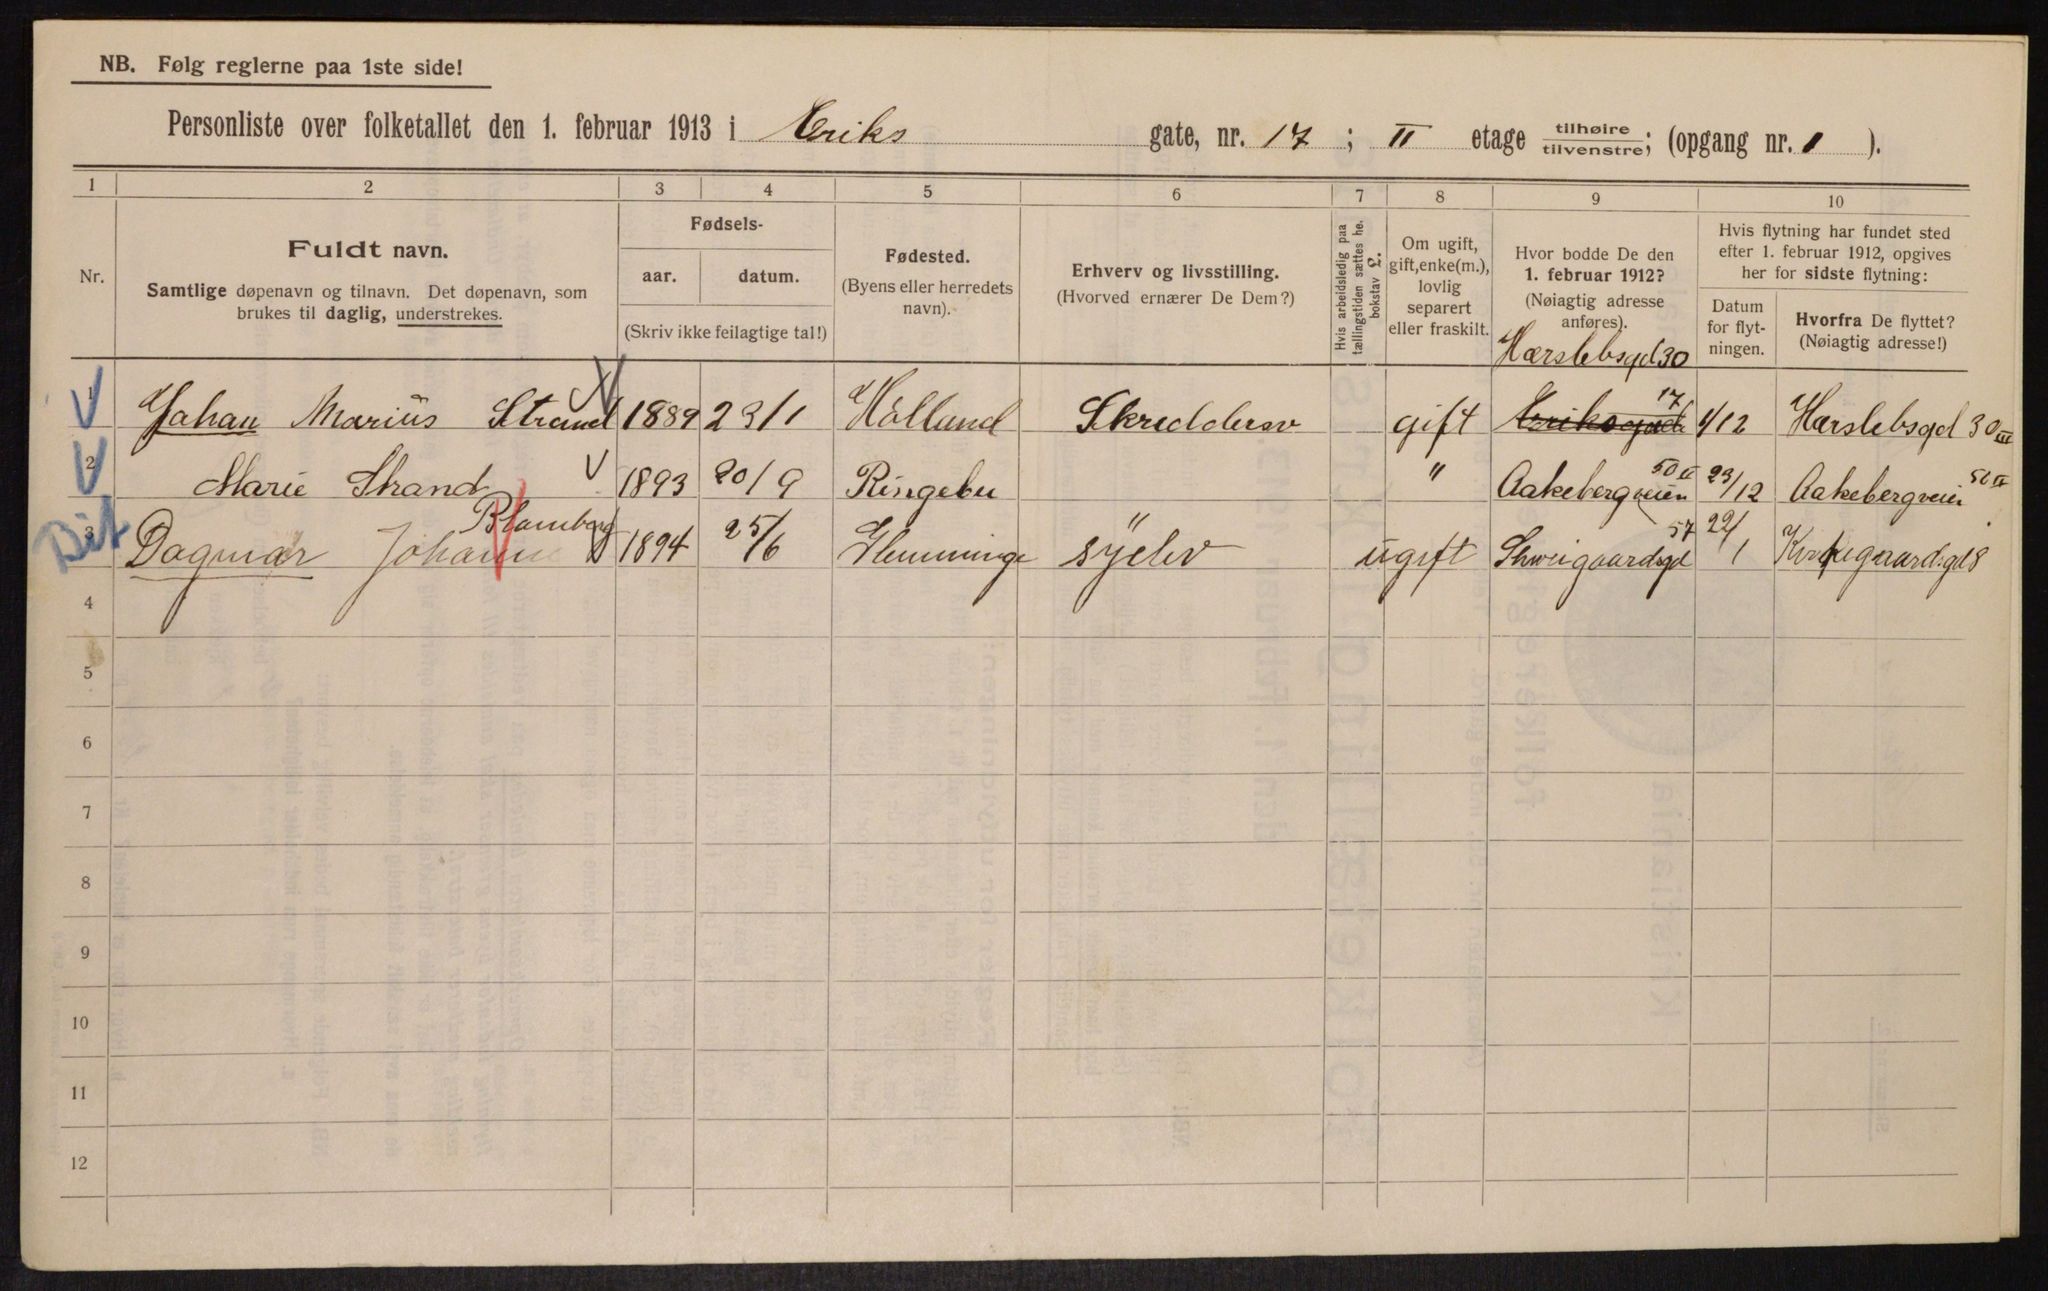 NB. Følg reglerne paa 1ste side!
Personliste over folketallet den 1. februar 1913 i Eriks gate, nr. 17 ; II etage tilhøire/tilvenstre; (opgang nr. 1 ).
1 2 3 4 5 6 7 8 9 10
Nr.
Fuldt navn.
Samtlige døpenavn og tilnavn. Det døpenavn, som
brukes til daglig, understrekes.
Fødsels-
aar. datum.
(Skriv ikke feilagtige tal!)
Fødested.
(Byens eller herredets
navn).
Erhverv og livsstilling.
(Hvorved ernærer De Dem?)
Hvis arbeidsledig paa
tællingstiden sættes her
bokstav L.
Om ugift,
gift, enke(m.),
lovlig
separert
eller fraskilt.
Hvor bodde De den
1. februar 1912?
(Nøiagtig adresse
anføres).
Hvis flytning har fundet sted
efter 1. februar 1912, opgives
her for sidste flytning:
Datum
for flyt-
ningen.
Hvorfra De flyttet?
(Nøiagtig adresse!)
Hærslebsgd 30
1 Johan Marius Strand 1889 23/1 Holland Skreddersv gift Eriksgade 17 1/12 Hærslebsgd 30 III
2 Marie Strand 1893 20/9 Ringebu " Aakebergveien 50 II 23/12 Aakebergveien 50 II
Blomberg
3 Dagmar Johanne 1894 25/6 Glemminge syelv ugift Shweigaardsgd 57 22/1 Kirkegaardsgd 8
4
5
6
7
8
9
10
11
12